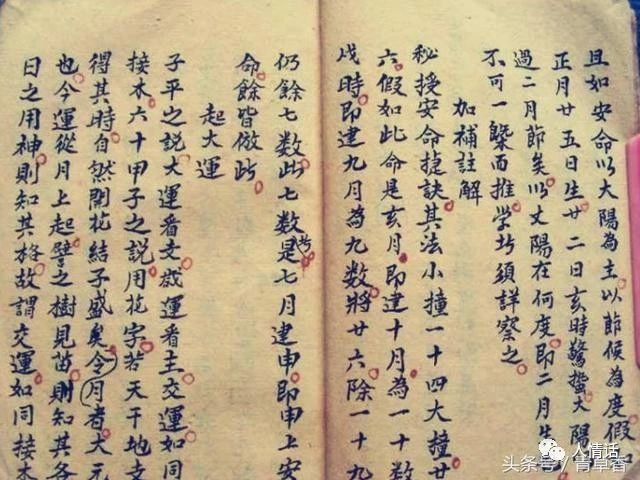 且如安命以大陽為主以節候為度假如
正月廿五日生廿二日亥時驚蟄大陽
過二月節矣以丈陽在何度即二月生
不可一槩而推学者須詳察之
加補註解
秘授安命捷訣其法小撞一十四大撞廿
六假如此命是亥月即建十月為一十数
戌時即建九月為九数將廿六除一十九
仍餘七数此七数是七月建申即申上安
命餘皆倣此
起大運
子平之説大運看支歲運看主交運如同
接木六十甲子之説用花字若天干地支
得其時自然開花結子盛矣令月者大元
也今運從月上起譬之樹見苗則知其各
日之用神則知其格故謂交運如同接木
人情话
头条号/青草香